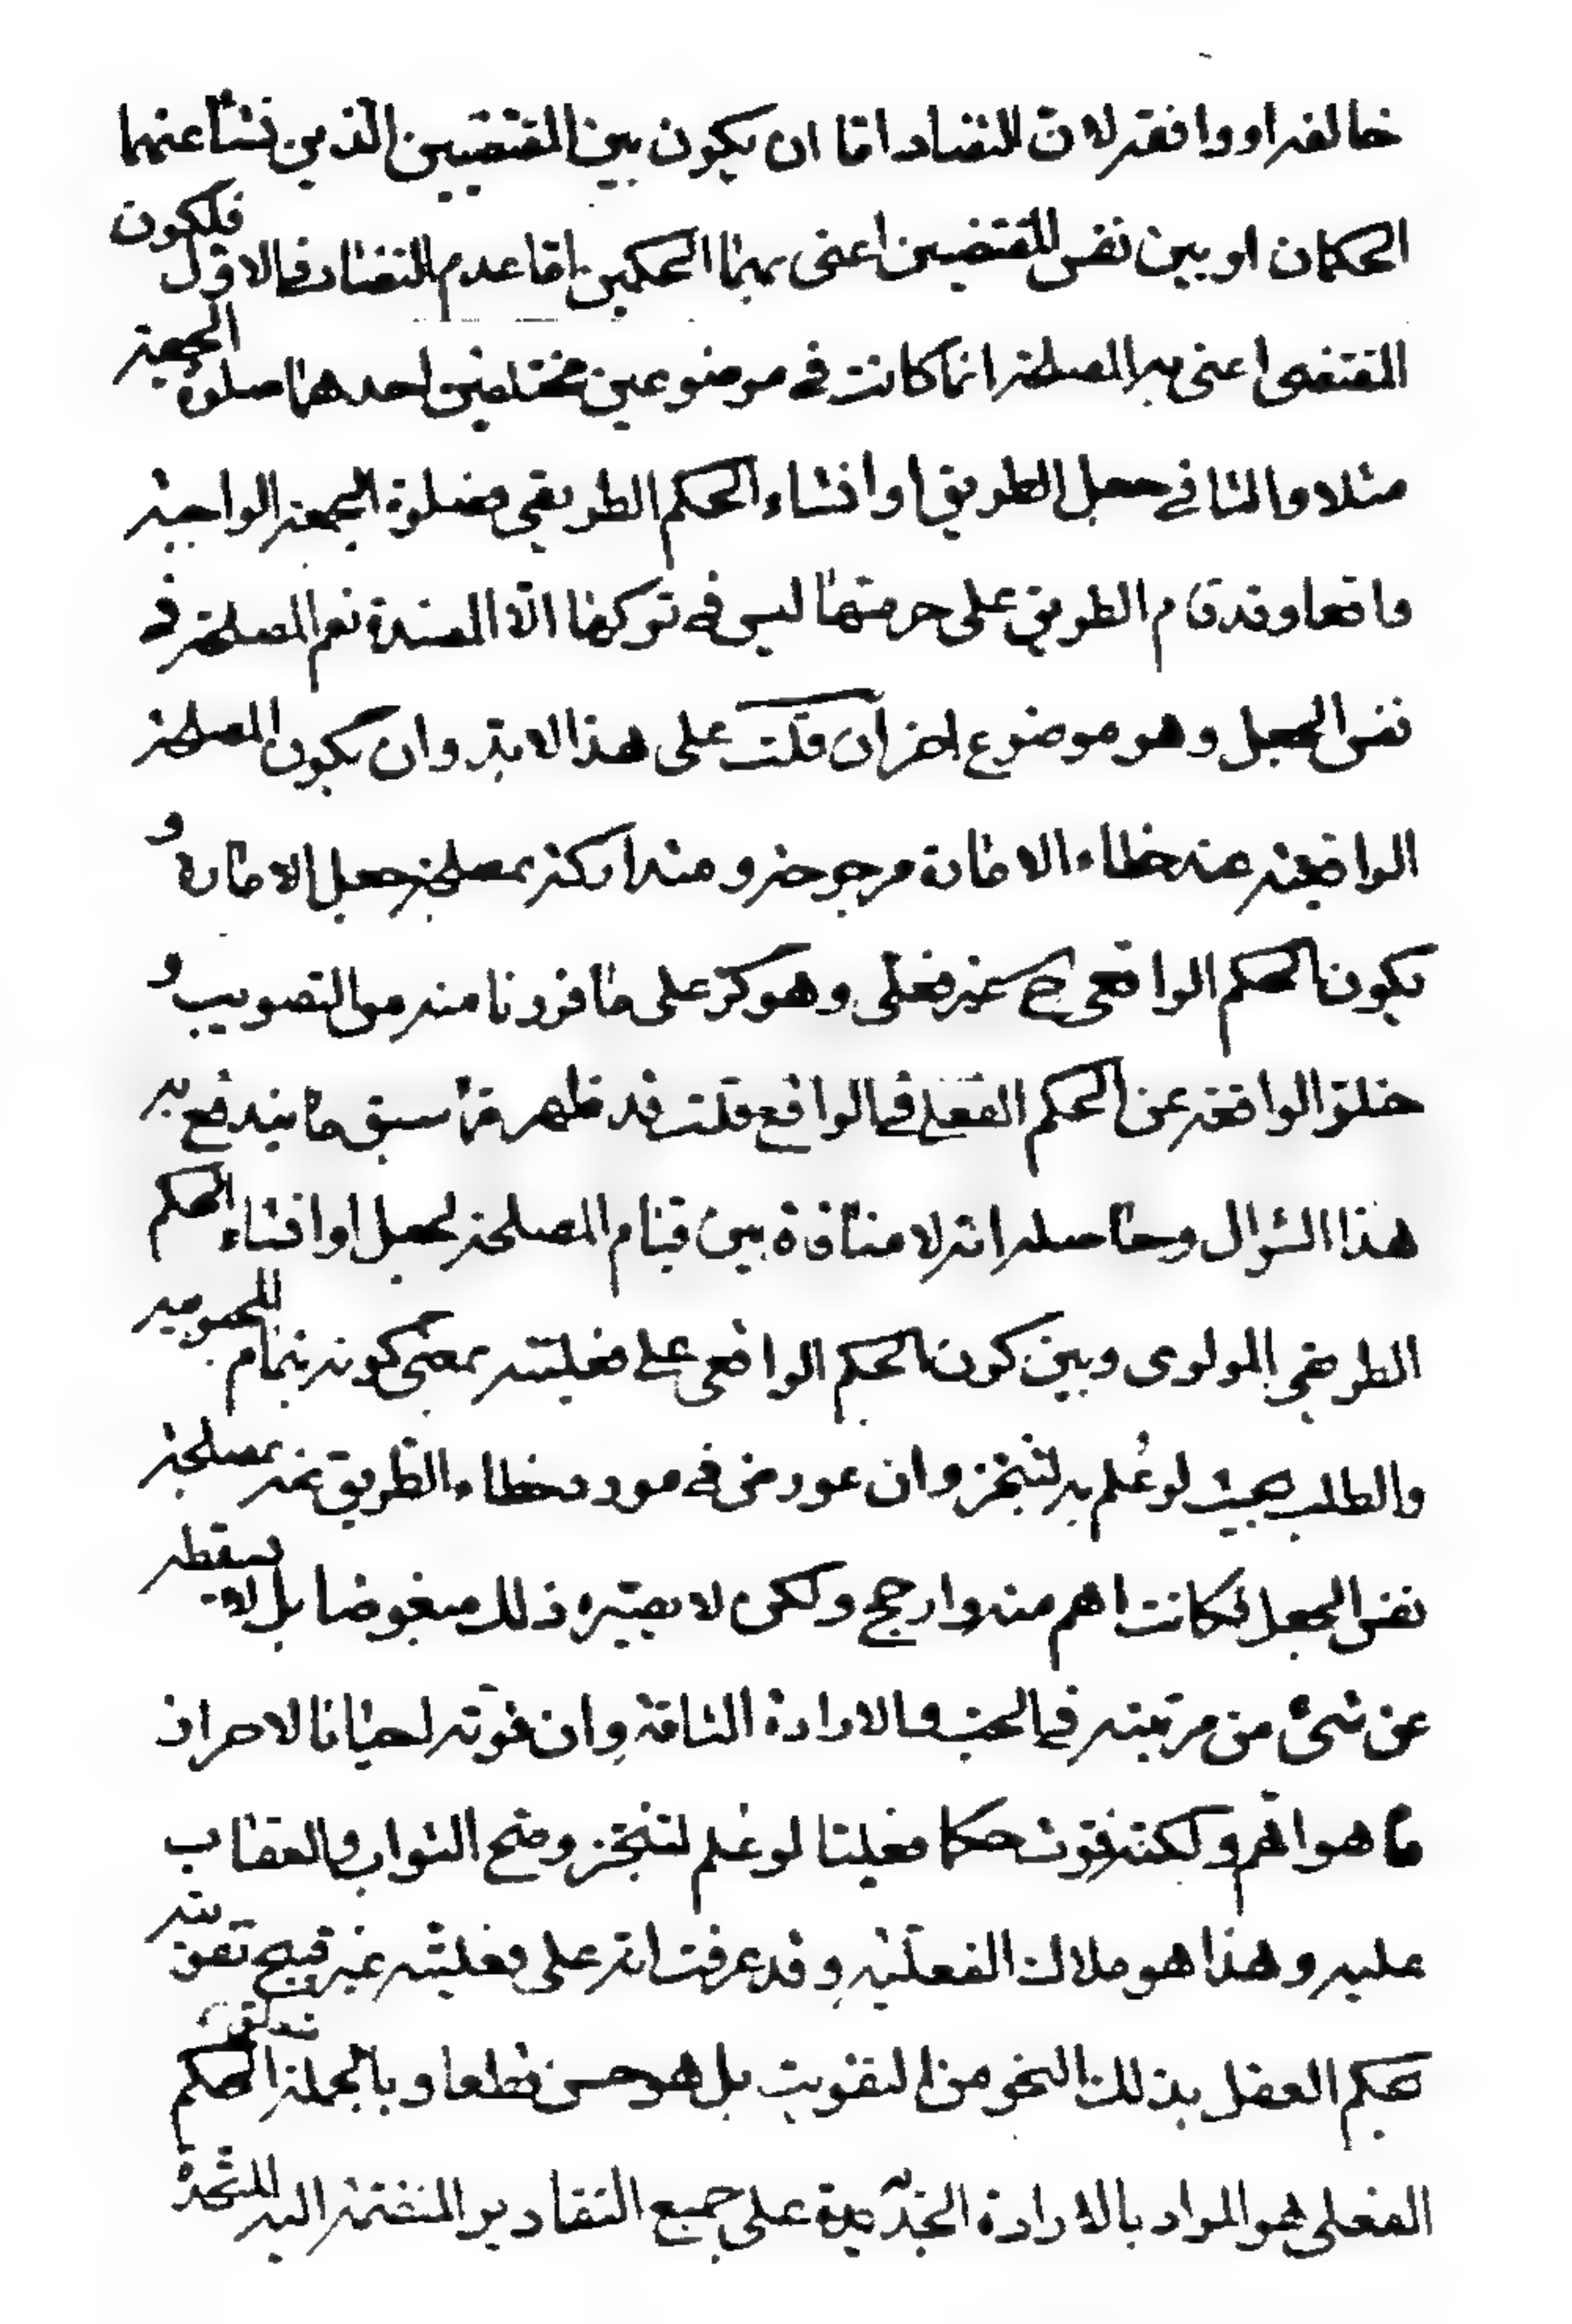 خالفه او وافقه لان التضاد اما ان يكون بين المقتضيين الذين نشأ عنهما
الحكمان او بين نفس المقتضيين اعنى بهما الحكمين اما عدم التضاد فى الاول فلكون
المقتضى اعنى به المصلحة انما كانت فى موضوعين مختلفين احدهما صلوة الجمعة
مثلا والثانى جعل الطريق او انشاء الحكم الطريقى فصلوة الجمعة الواجبة
واقعا وقد قام الطريق على حرمتها ليس فى تركها الا المفسدة نعم المصلحة فى
نفس الجعل وهو موضوع اخر ان قلت على هذا لابد وان يكون المصلحة
الواقعية عند خطاء الامارة مرجوحة ومندكة بمصلحة جعل الامارة و
يكون الحكم الواقعى ح غير فعلى وهو كر على ما فررنا منه من التصويب و
خلو الواقعة عن الحكم الفعلى فى الواقع قلت قد ظهر مما سبق ما يندفع به
هذا السؤال وحاصله انه لا منافاة بين قيام المصلحة لجعل او انشاء الحكم
الطريقى المولوى وبين كون الحكم الواقعى على فعليته بمعنى كونه بتمام المحبوبية
والطلب بحيث لو علم به لتنجز وان عورض فى مورد خطاء الطريق عنه بمصلحة
نفس الجعل فكانت اهم منه وارجح ولكن لا يصيره ذلك مبغوضا بل لا يسقطه
عن شىء من مرتبته فى الحب والارادة التامة وان فوته احيانا لاحراز
ما هو اهم ولكنه فوت حكما فعليا لو علم لتنجز وصح الثواب والعقاب
عليه وهذا هو ملاك الفعلية وقد عرفت انه على فعليته غير قبيح تفويته
بحكم العقل بذلك النحو من التفويت بل هو حسن قطعا وبالجملة الحكم
الفعلى هو المراد بالارادة الجدية على جميع التقادير المنضمة اليه المتحدة